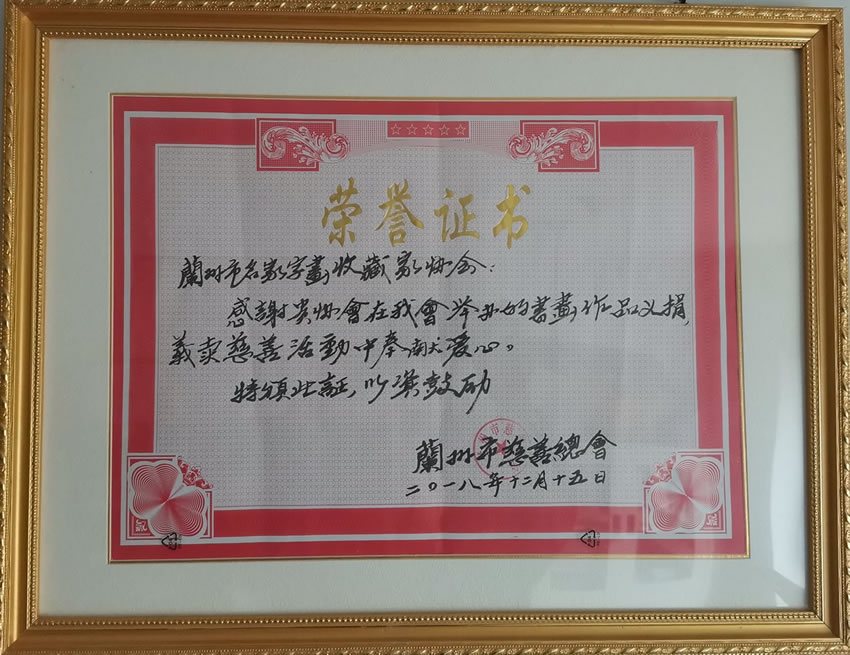 荣誉证书
蘭州市名家字畫收藏家协会：
感謝贵协會在我會举办的書畫作品义捐，
義卖慈善活動中奉献大爱心。
特頒此証，以资鼓励
蘭州市慈善總會
二〇一八年十二月十五日